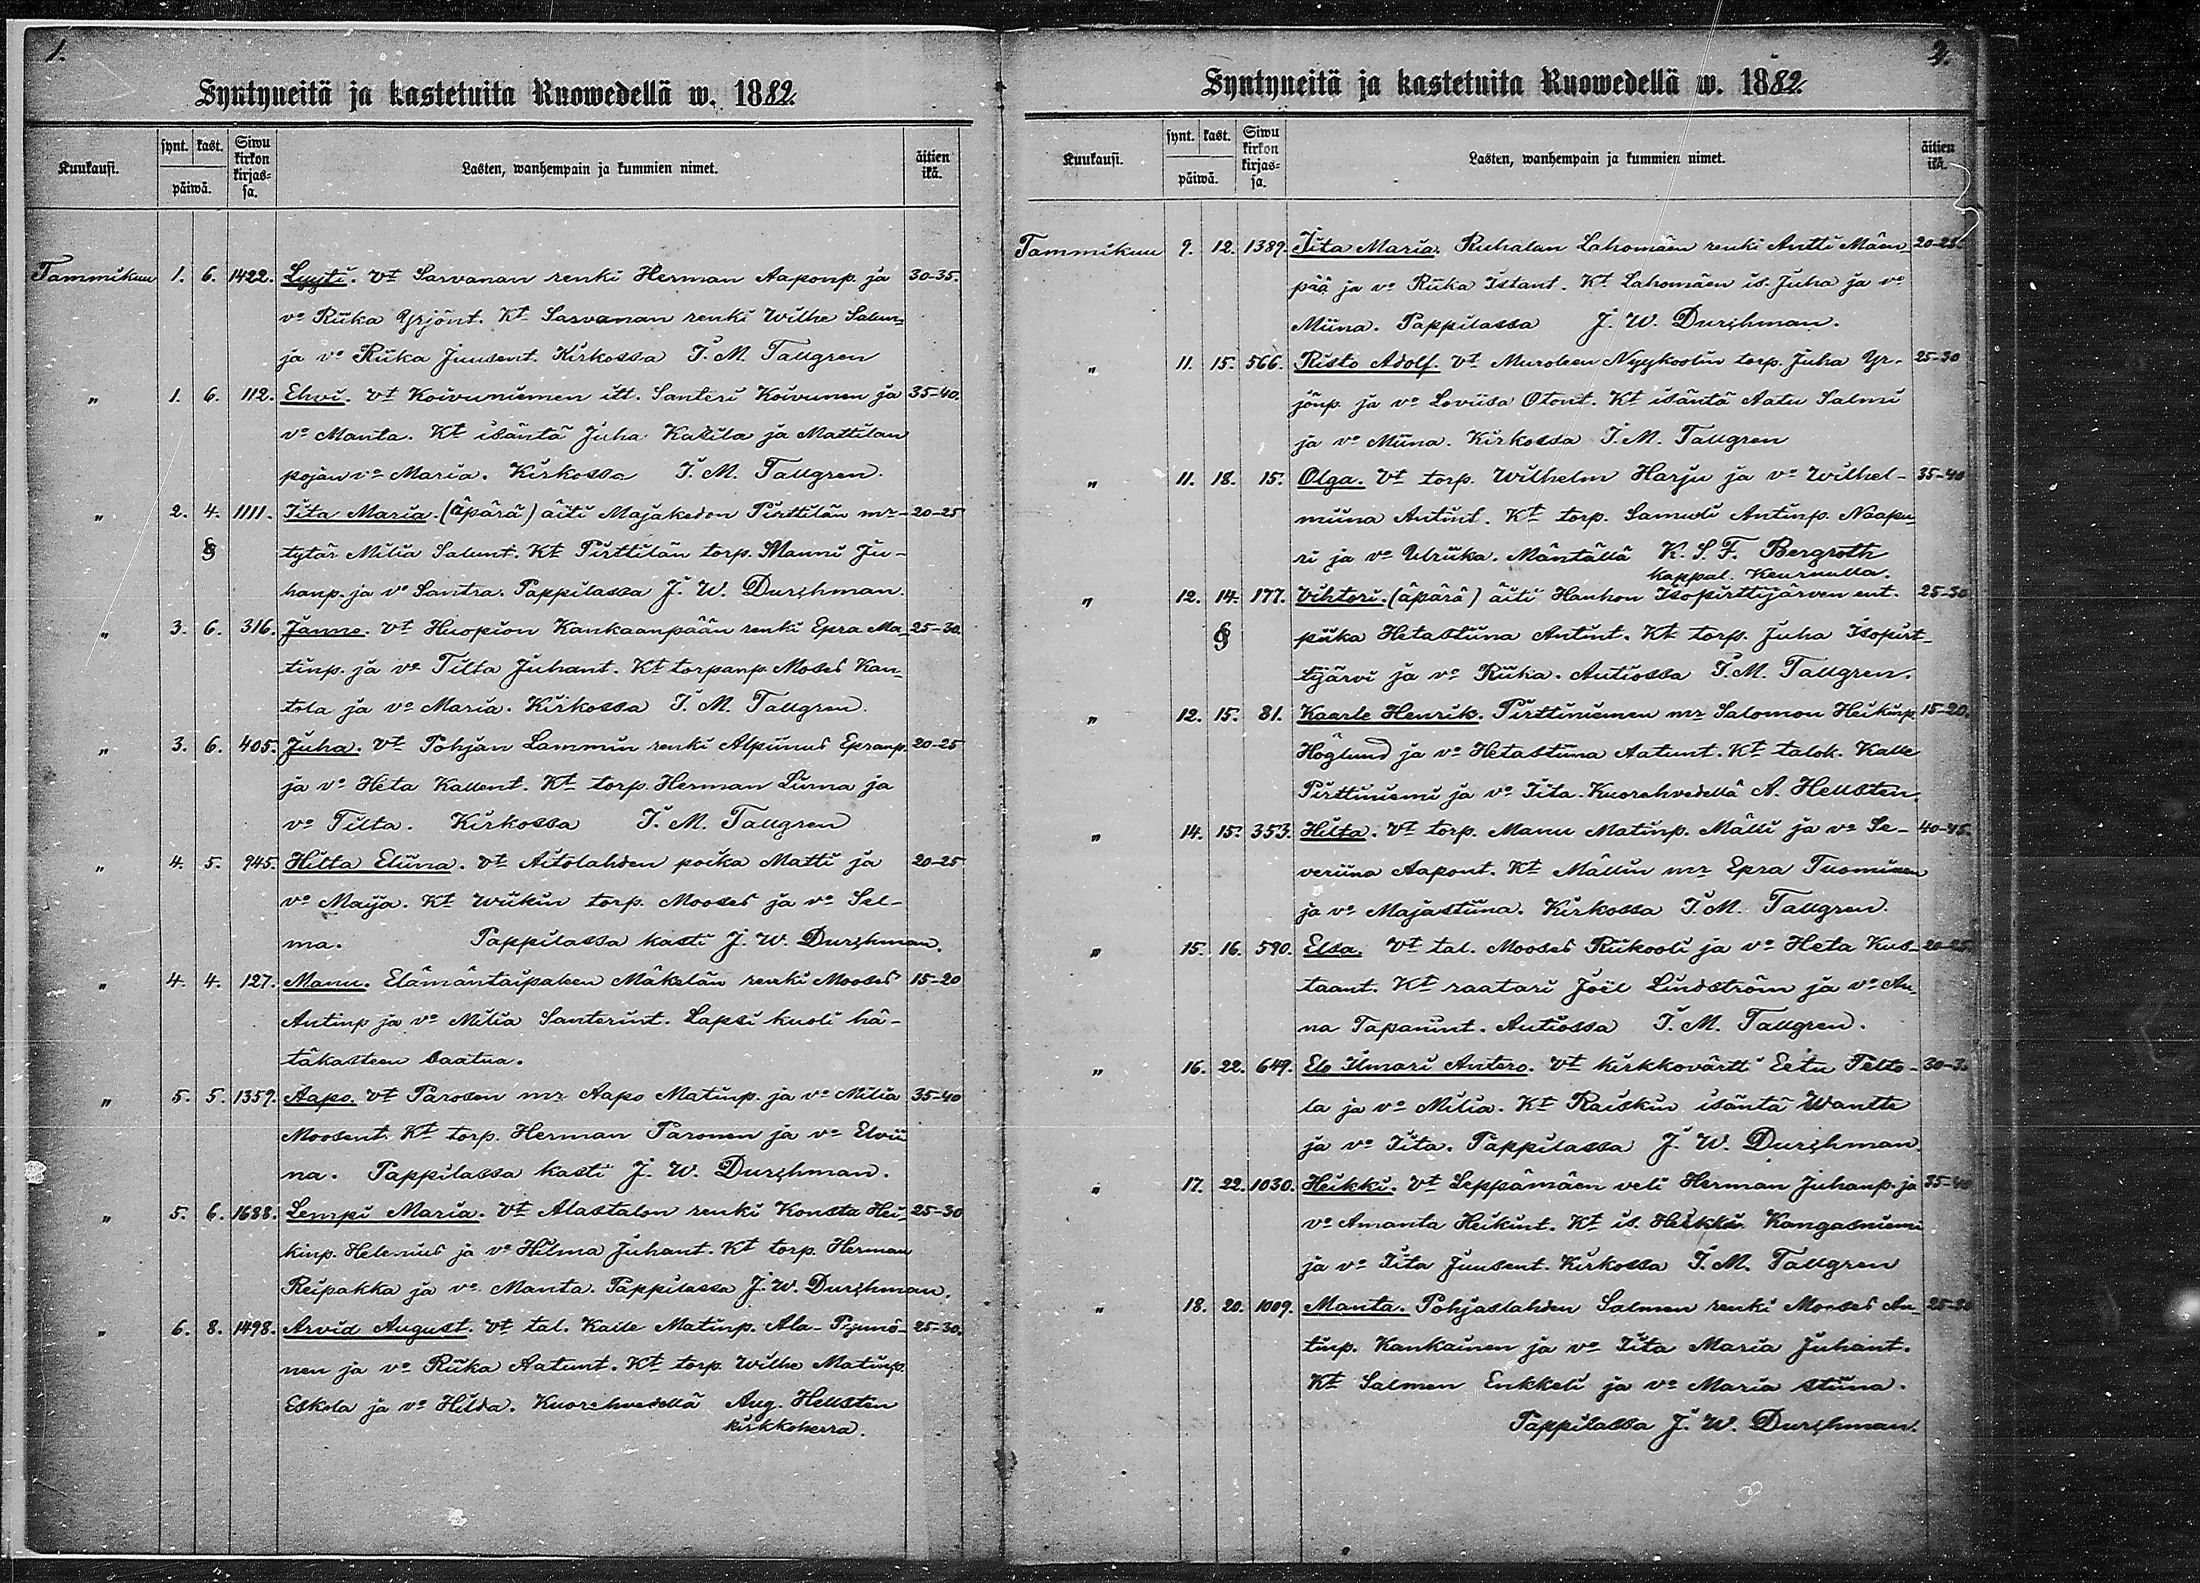 1.
Syntyneitä ja kastetuita Ruowedellä w. 1882.
Kuukausi. synt. kast. päiwä. Siwu kirkon kirjas-sa. Lasten, wanhempain ja kummien nimet. äitien ikä.
Tammikuu 1. 6. 1422. Lyyti. Vt Sarvanan renki Herman Aaponp. ja 30-35.
vo Riika Yrjönt. Kt Sarvanan renki Wilhe Salun-
ja vo Riika Juusent. Kirkossa I. M. Tallgren
" 1. 6. 112. Ehvi. Vt Koivuniemen itt. Santeri Koivunen ja 35-40.
vo Manta. Kt isäntä Juha Katila ja Mattilan
pojan vo Maria. Kirkossa I. M. Tallgren.
" 2. 4. 1111. Iita Maria. (äpärä) äiti Majakedon Pirttilän mr- 20-25
tytär Milia Salunt. Kt Pirttilän torp. Manni Ju-
hanp. ja vo Santra. Pappilassa J. W. Durchman.
" 3. 6. 316. Janne. Vt Huopion Kankaanpään renki Epra Ma- 25-30.
tinp. ja vo Tilta Juhant. Kt torpanp. Moses Kan-
tola ja vo Maria. Kirkossa I. M. Tallgren.
" 3. 6. 405. Juha. Vt Pohjan Lammin renki Alpinus Epranp. 20-25
ja vo Heta Kallent. Kt torp. Herman Linna ja
vo Tilta. Kirkossa I. M. Tallgren
" 4. 5. 945. Hilta Eliina. Vt Aitolahden poika Matti ja 20-25
vo Maija. Kt Wiikin torp. Mooses ja vo Sel-
ma. Pappilassa kasti J. W. Durchman.
" 4. 4. 127. Manu. Elämäntaipaleen Mäkelän renki Mooses 15-20
Antinp ja vo Milia Santerint. Lapsi kuoli hä-
täkasteen saatua.
" 5. 5. 1359. Aapo. Vt Parosen mr Aapo Matinp. ja vo Milia 35-40
Moosent. Kt torp. Herman Paronen ja vo Elvii
na. Pappilassa kasti J. W. Durchman.
" 5. 6. 1688. Lempi Maria. Vt Alastalon renki Konsta Hei- 25-30
kinp. Helenius ja vo Hilma Juhant. Kt torp. Herman
Reipakka ja vo Manta. Pappilassa J. W. Durchman.
" 6. 8. 1498. Arvid August. Vt tal. Kalle Matinp. Ala- 25-30.
nen ja vo Riika Aatunt. Kt torp. Wilhe Matinp.
Eskola ja vo Hilda. Kuorehvedellä Aug. Hellsten
kirkkoherra.
2.
Syntyneitä ja kastetuita Ruowedellä w. 1882.
Kuukausi. synt. kast. päiwä. Siwu kirkon kirjas-sa. Lasten, wanhempain ja kummien nimet. äitien ikä.
Tammikuu 9. 12. 1389. Iita Maria. Ruhalan Lahomäen renki Antti Mäen- 20-25.
pää ja vo Riika Istant. Kt Lahomäen is. Juha ja vo
Miina. Pappilassa J. W. Durchman.
" 11. 15. 566. Risto Adolf. Vt Muroleen Nyykoolin torp. Juha Yr- 25-30
jönp. ja vo Loviisa Otont. Kt isäntä Aatu Salmi
ja vo Miina. Kirkossa I. M. Tallgren
" 11. 18. 15. Olga. Vt torp. Wilhelm Harju ja vo Wilhel- 35-40
miina Antint. Kt torp. Samuli Antinp. Naapu-
ri ja vo Ulriika. Mäntällä K. S. F. Bergroth
kappal. Keuruulla.
" 12. 14. 177. Vihtori. (äpärä) äiti Hanhon Isopirttijärven ent. 25-30
piika Hetastiina Antint. Kt torp. Juha Isopirt-
tijärvi ja vo Riika. Autiossa I. M. Tallgren.
" 12. 15. 81. Kaarle Henrik. Pirttiniemen mr Salomon Heikinp. 15-20.
Höglund ja vo Hetastiina Aatunt. Kt talok. Kalle
Pirttiniemi ja vo Iita. Kuorehvedellä A. Hellsten.
" 14. 15. 353. Hilta. Vt torp. Manu Matinp. Mälli ja vo Se- 40-45.
veriina Aapont. Kt Mällin mr Epra Tuominen
ja vo Majastiina. Kirkossa I. M. Tallgren.
" 15. 16. 590. Elsa. Vt tal. Mooses Riikooli ja vo Heta Kus- 20-25
taant. Kt raatari Joël Lindström ja vo An-
na Tapanint. Autiossa I. M. Tallgren.
" 16. 22. 649. Elo Ilmari Antero. Vt kirkkovärtti Eetu Pelto- 30-3
la ja vo Milia. Kt Raiskin isäntä Wantte
ja vo Iita. Pappilassa J. W. Durchman.
" 17. 22. 1030. Heikki. Vt Leppämäen veli Herman Juhanp. ja 35-40
vo Amanta Heikint. Kt is. Heikki Kangasniemi
ja vo Iita Juusent. Kirkossa I. M. Tallgren
" 18. 20. 1009. Manta. Pohjaslahden Salmen renki Mooses An- 25-30
tinp. Kankainen ja vo Iita Maria Juhant.
Kt Salmen Enkkeli ja vo Maria stiina.
Pappilassa J. W. Durchman.